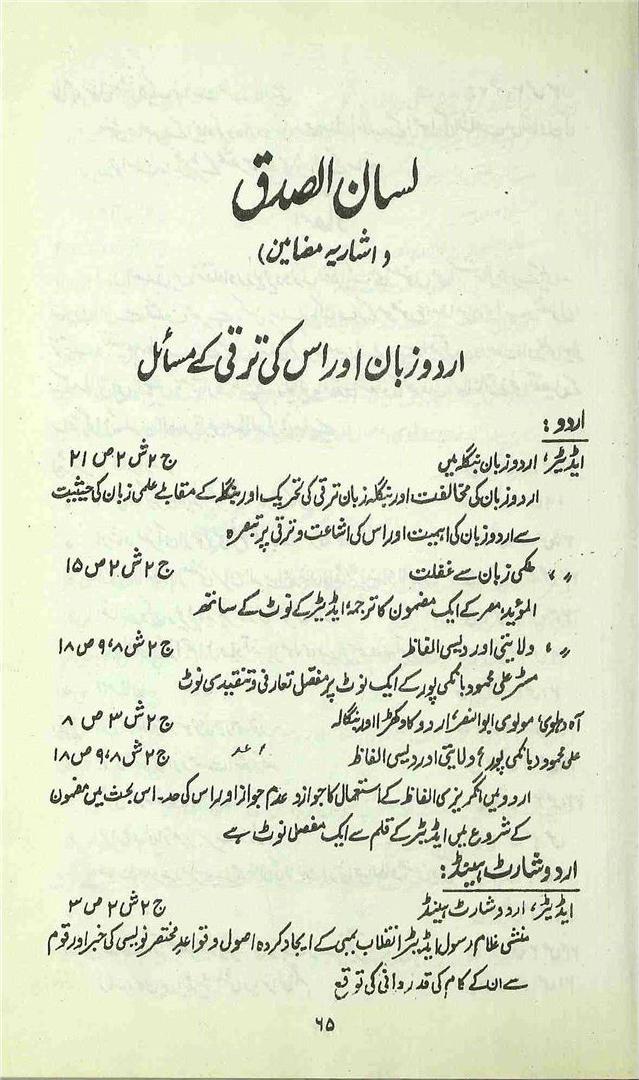 لسان الصدق
(اشاریہ مضامین)
اردو زبان اور اس کی ترقی کے مسائل
اردو:
ایڈیٹر، اردو زبان بنگلہ میں ج ۲ ش ۲ ص ۲۱
اردو زبان کی مخالفت اور بنگلہ زبان ترقی کی تحریک اور بنگلہ کے مقابلے علمی زبان کی حیثیت
سے اردو زبان کی اہمیت اور اس کی اشاعت و ترقی پر تبصرہ
〃 ، ملکی زبان سے غفلت ج ۲ ش ۲ ص ۱۵
المؤید، مصر کے ایک مضمون کا ترجمہ ایڈیٹر کے نوٹ کے ساتھ
〃 ، ولایتی اور دیسی الفاظ ج ۲ ش ۸،۹ ص ۱۸
مسٹر علی محمود بانکی پور کے ایک نوٹ پر مفصل تعارفی و تنقیدی نوٹ
آہ دہلوی، مولوی ابوالنصر، اردو کا دکھڑا اور بنگالہ ج ۲ ش ۳ ص ۸
علی محمود (بانکی پور)، ولایتی اور دیسی الفاظ ج ۲ ش ۸،۹ ص ۱۸
اردو میں انگریزی الفاظ کے استعمال کا جواز و عدم جواز اور اس کی حد۔ اس بحث میں مضمون
کے شروع میں ایڈیٹر کے قلم سے ایک مفصل نوٹ ہے
اردو شارٹ ہینڈ:
ایڈیٹر، اردو شارٹ ہینڈ ج ۲ ش ۲ ص ۳
منشی غلام رسول ایڈیٹر انقلاب بمبی کے ایجاد کردہ اصول و قواعدِ مختصر نویسی کی خبر اور قوم
سے ان کے کام کی قدر دانی کی توقع
۶۵